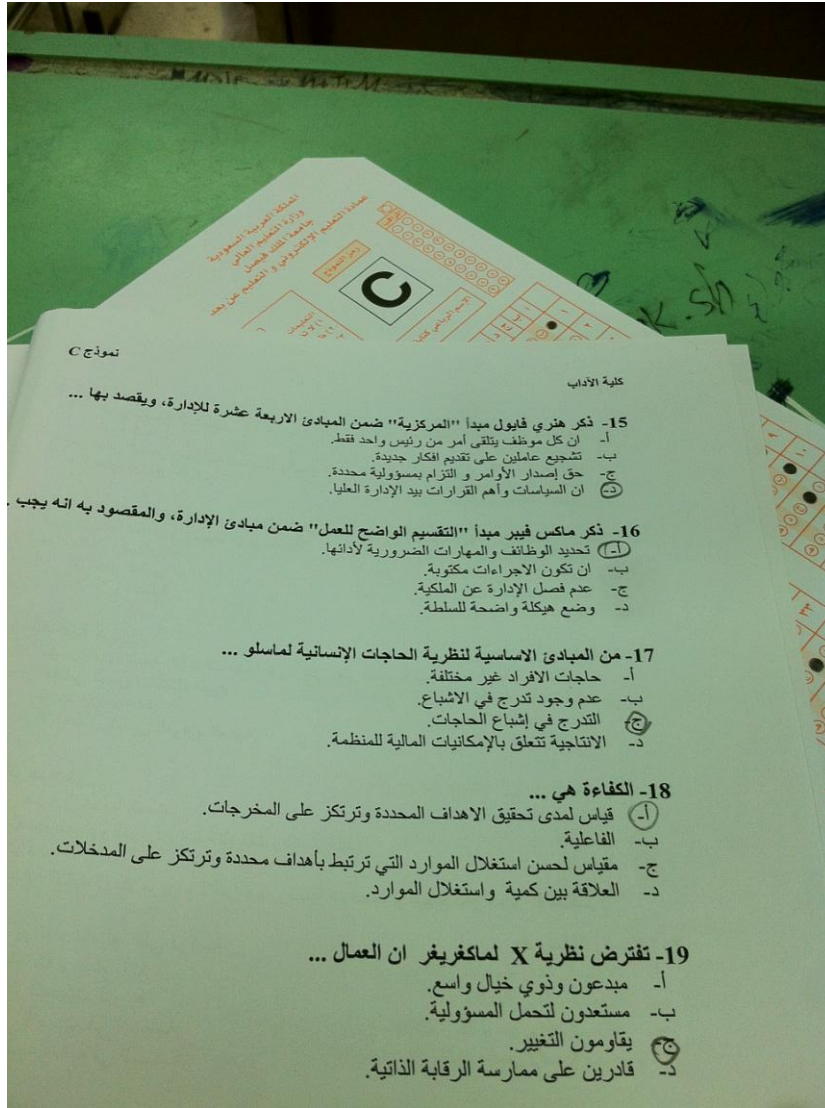 المملكة العربية السعودية
وزارة التعليم العالي
جامعة الملك فيصل
عمادة التعليم الإلكتروني و التعليم عن بعد
رمز النموذج
C
الاسم الرباعي
التعليمات
نموذج C
كلية الآداب
15- ذكر هنري فايول مبدأ "المركزية" ضمن المبادئ الاربعة عشرة للإدارة، ويقصد بها ...
أ- ان كل موظف يتلقى أمر من رئيس واحد فقط.
ب- تشجيع عاملين على تقديم افكار جديدة.
ج- حق إصدار الأوامر و التزام بمسؤولية محددة.
د- ان السياسات وأهم القرارات بيد الإدارة العليا.
16- ذكر ماكس فيبر مبدأ "التقسيم الواضح للعمل" ضمن مبادئ الإدارة، والمقصود به انه يجب .
أ- تحديد الوظائف والمهارات الضرورية لأدائها.
ب- ان تكون الاجراءات مكتوبة.
ج- عدم فصل الإدارة عن الملكية.
د- وضع هيكلة واضحة للسلطة.
17- من المبادئ الاساسية لنظرية الحاجات الإنسانية لماسلو ...
أ- حاجات الافراد غير مختلفة.
ب- عدم وجود تدرج في الاشباع.
ج- التدرج في إشباع الحاجات.
د- الانتاجية تتعلق بالإمكانيات المالية للمنظمة.
18- الكفاءة هي ...
أ- قياس لمدى تحقيق الاهداف المحددة وترتكز على المخرجات.
ب- الفاعلية.
ج- مقياس لحسن استغلال الموارد التي ترتبط بأهداف محددة وترتكز على المدخلات.
د- العلاقة بين كمية واستغلال الموارد.
19- تفترض نظرية X لماكغريغر ان العمال ...
أ- مبدعون وذوي خيال واسع.
ب- مستعدون لتحمل المسؤولية.
ج- يقاومون التغيير.
د- قادرين على ممارسة الرقابة الذاتية.